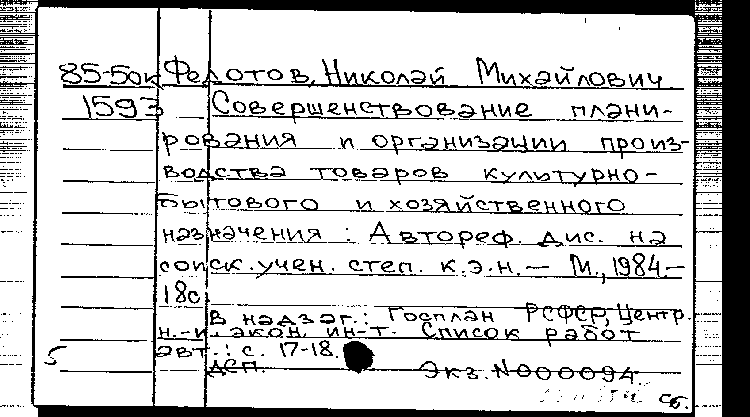 85-5ок Федотов, Николай Михайлович.
1593 Совершенствование плани-
рования и организации произ-
водства товаров культурно-
бытового и хозяйственного
назначения : Автореф. дис. на
соиск. учен. степ. к.э.н. — М., 1984.—
18с.
В надзаг.: Госплан РСФСР, Центр.
н.-и. экон. ин-т. Список работ
авт.: с. 17-18.
5 ДСП. Экз. N000094.
сб.